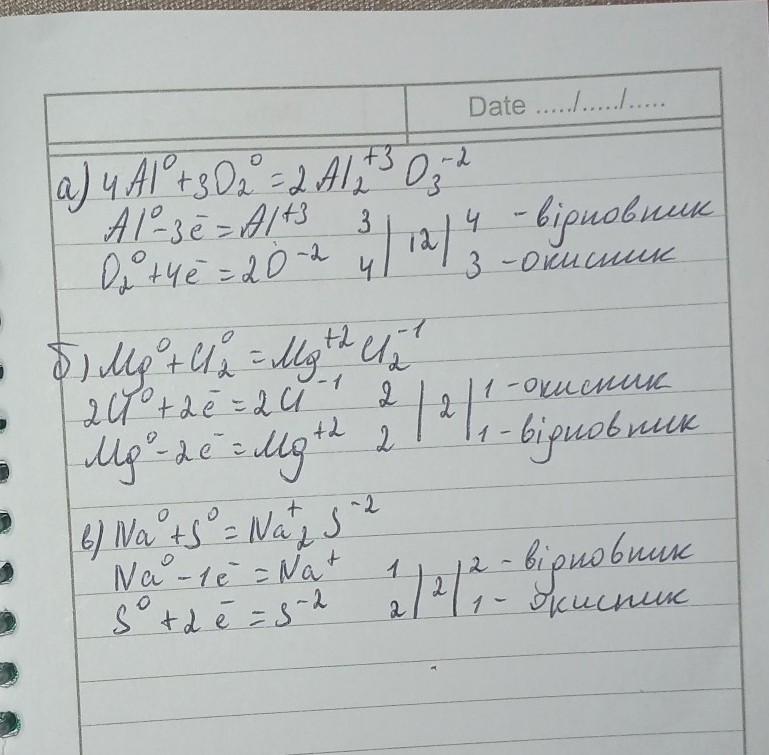 Date ...../...../.....
а) 4Al⁰ + 3O₂⁰ = 2Al₂⁺³O₃⁻²
Al⁰ - 3ē = Al⁺³ 3 | 12 | 4 - вірновник
O₂⁰ + 4ē = 2O⁻² 4 | | 3 - окисник
б) Mg⁰ + Cl₂⁰ = Mg⁺²Cl₂⁻¹
2Cl⁰ + 2ē = 2Cl⁻¹ 2 | 2 | 1 - окисник
Mg⁰ - 2ē = Mg⁺² 2 | | 1 - вірновник
в) Na⁰ + S⁰ = Na₂⁺S⁻²
Na⁰ - 1ē = Na⁺ 1 | 2 | 2 - вірновник
S⁰ + 2ē = S⁻² 2 | | 1 - окисник